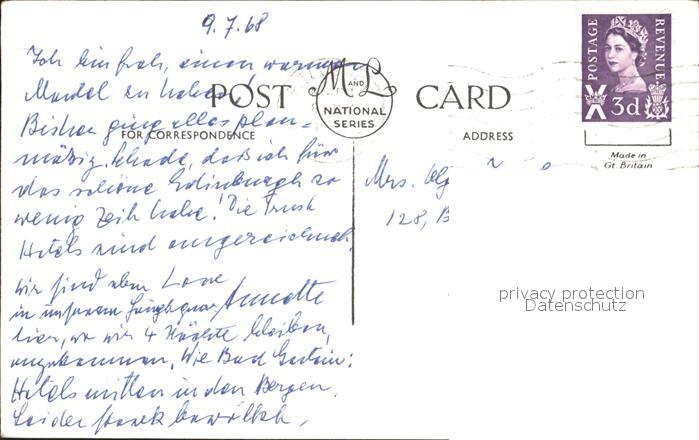 9.7.68
Ich bin froh, einen warmen
Mantel zu haben!
Bisher ging alles plan-
mäßig. Schade, daß ich für
das schöne Edinburgh so
wenig Zeit habe! Die Trust
Hotels sind ausgezeichnet.
Wir sind eben Love
in unserem Annette
hier, wo wir 4 Nächte bleiben,
angekommen. Wie Bad Gastein:
Hotels mitten in den Bergen.
Leider stark bewölkt,
POST CARD
M AND L
NATIONAL
SERIES
FOR CORRESPONDENCE
ADDRESS
POSTAGE
REVENUE
3d
Made in
Gt. Britain
Mrs.
128, B
privacy protection
Datenschutz